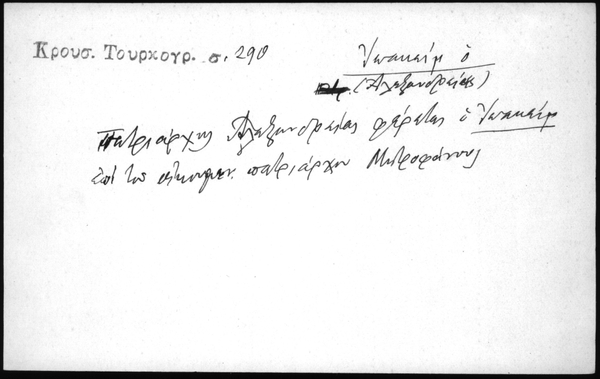 Κρουσ. Τουρκογρ. σ. 290
Ἰωακείμ ὁ
(Ἀλεξανδρείας)
Πατριάρχης Ἀλεξανδρείας φέρεται ὁ Ἰωακείμ
ἐπί τοῦ οἰκουμεν. πατριάρχου Μητροφάνους